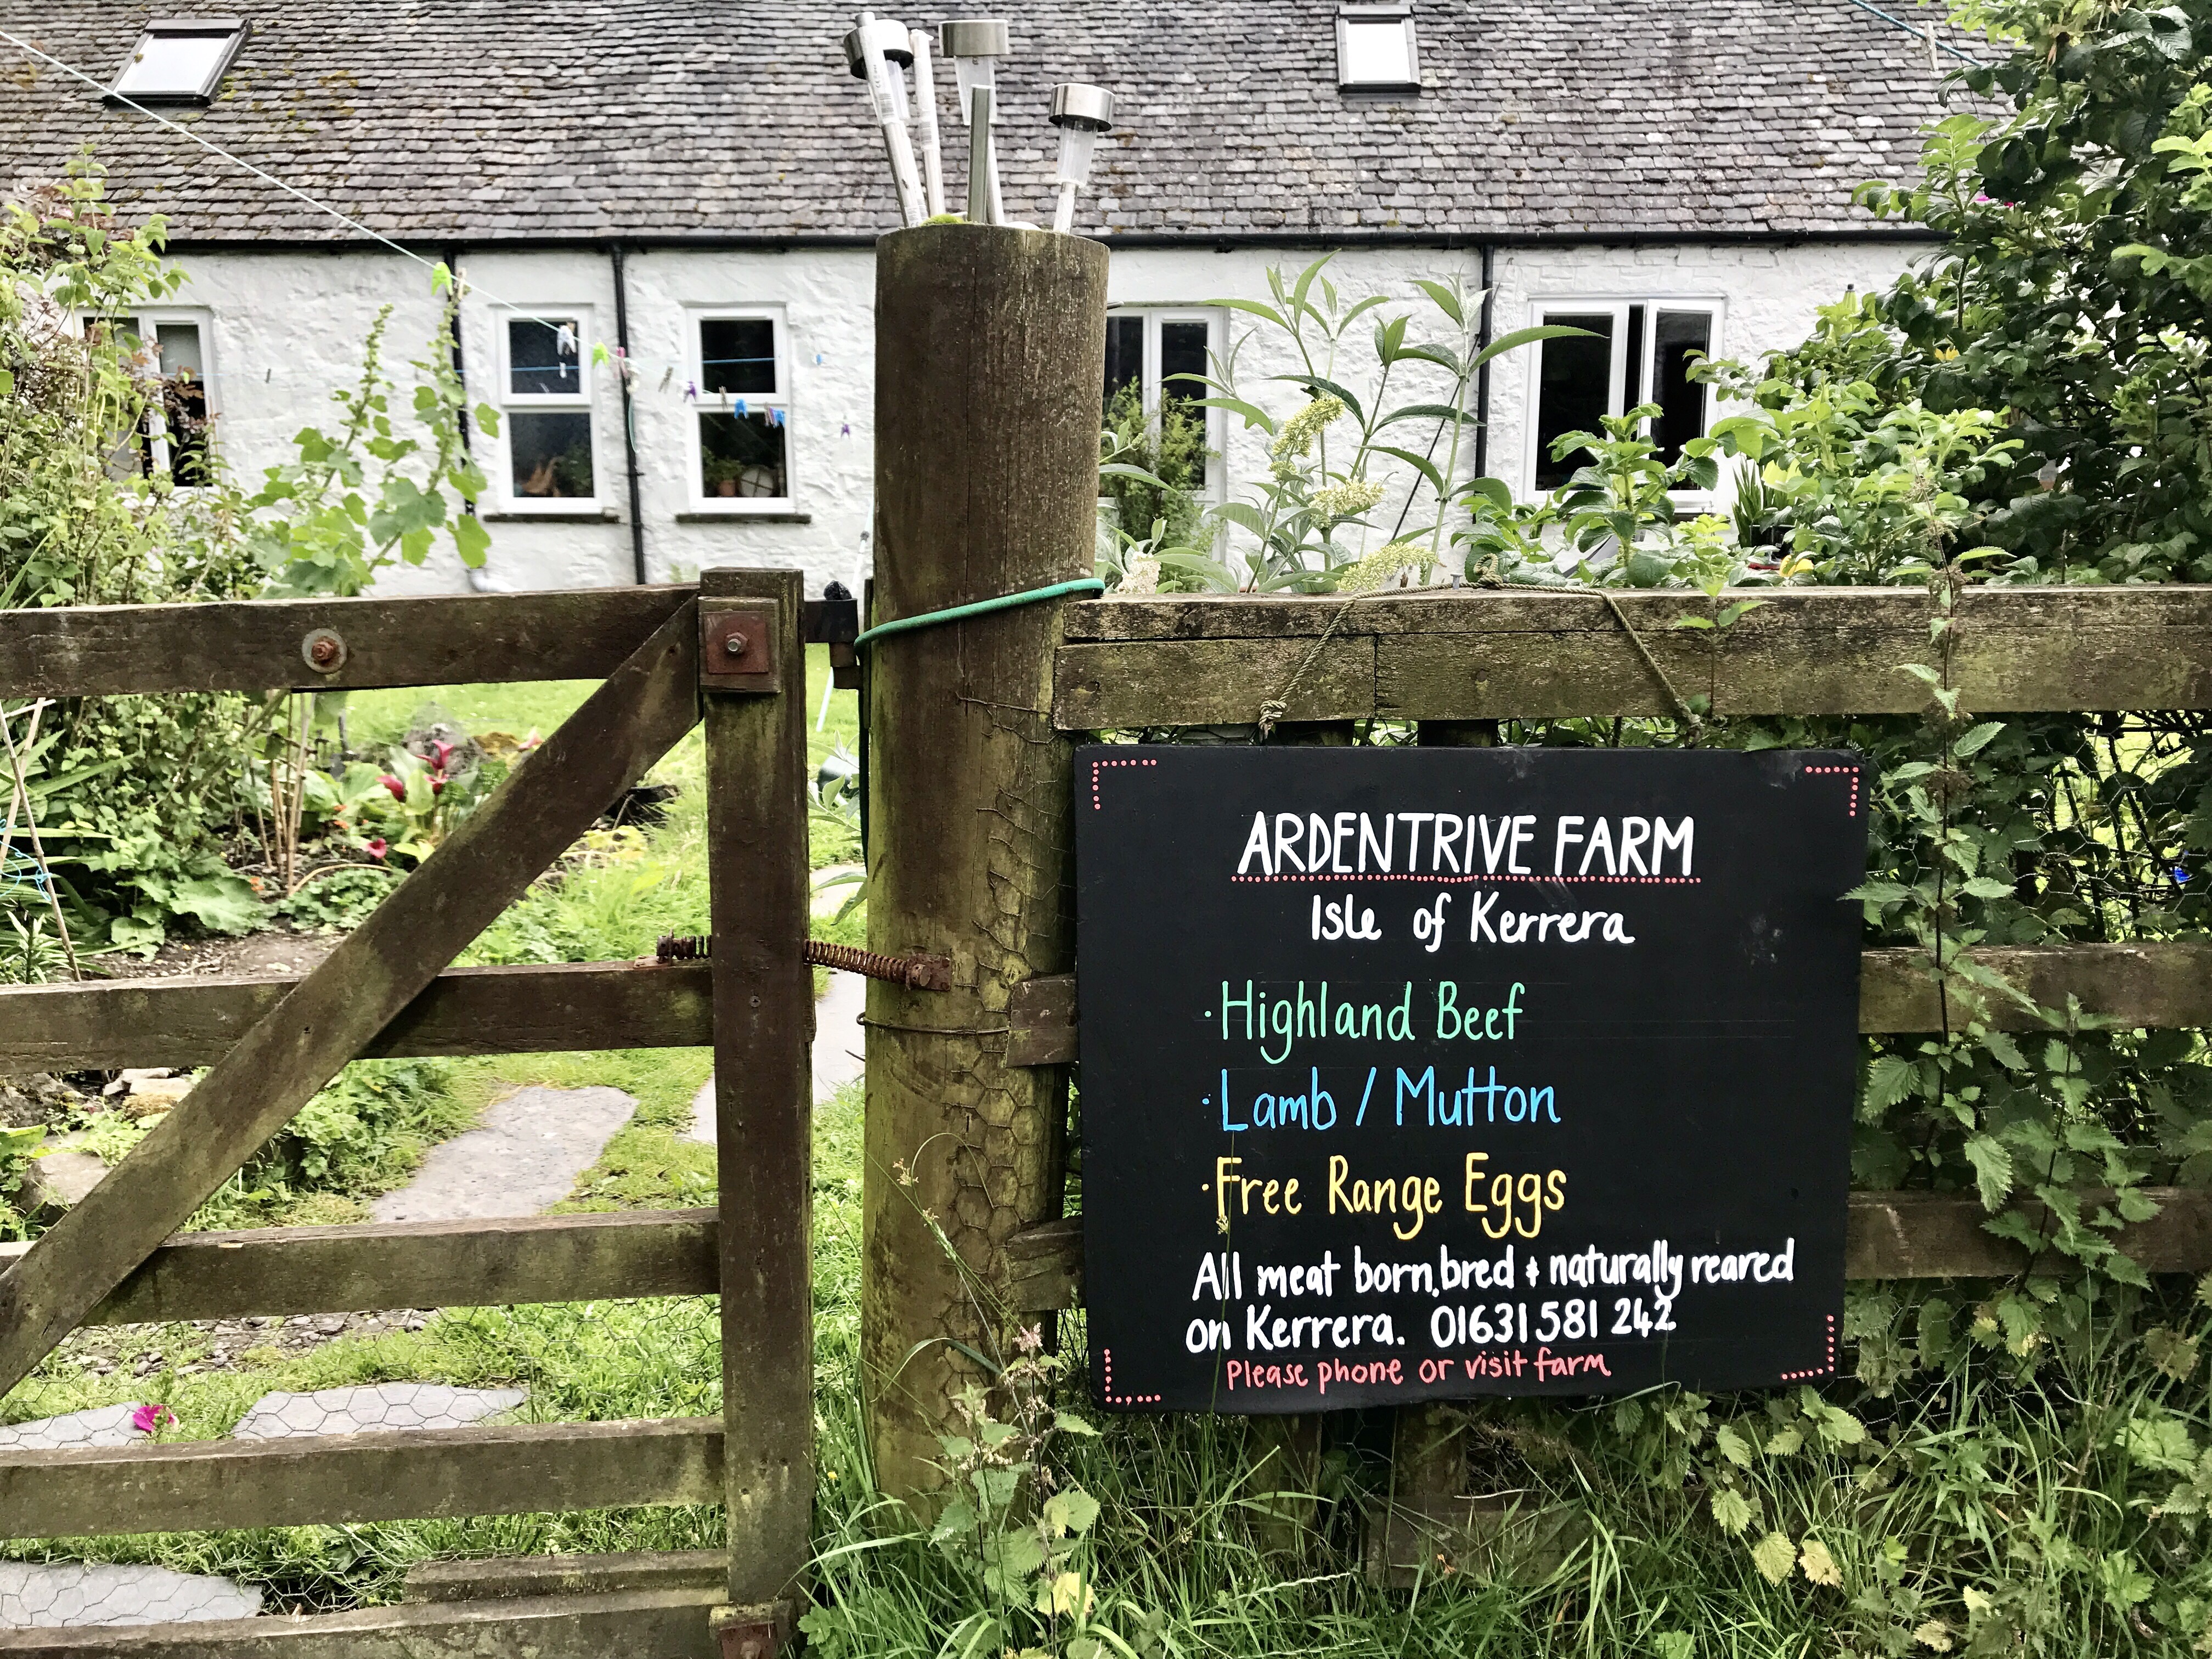 ARDENTRIVE FARM
Isle of Kerrera
·Highland Beef
·Lamb / Mutton
·Free Range Eggs
All meat born, bred & naturally reared
on Kerrera. 01631 581 242
Please phone or visit farm